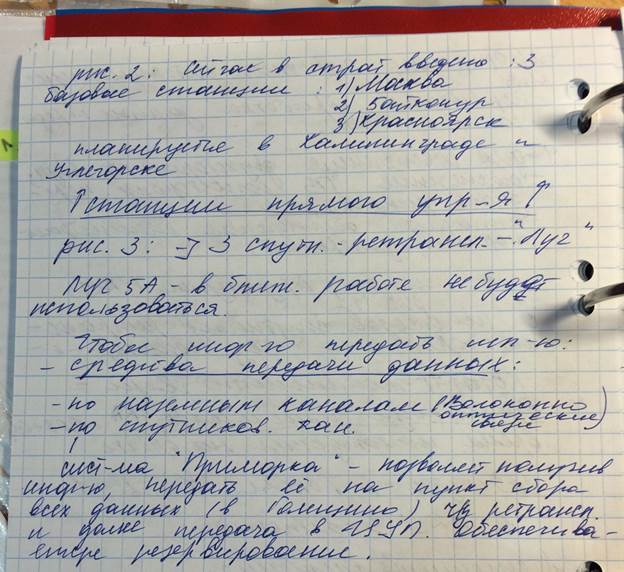 рис. 2: Сейчас в строй введено : 3
базовые станции : 1) Москва
2) Байконур
3) Красноярск
планируется в Калининграде и
Углегорске
↑ станции прямого упр-я ↑
рис. 3: ∃ 3 спутн. - ретрансл. - "Луч"
Луч 5А - в ближ. работе не будет
использоваться.
Чтобы инф-ю передать
- средства передачи данных:
- по наземным каналам (Волоконно
оптические
связи)
- по спутников. кан.
сист-ма "Приморка" - позволяет получив
инф-ю, передать её на пункт сбора
всех данных (в Голицино) ч/з ретрансл
и далее передача в ЦУП. Обеспечива-
ется резервирование.